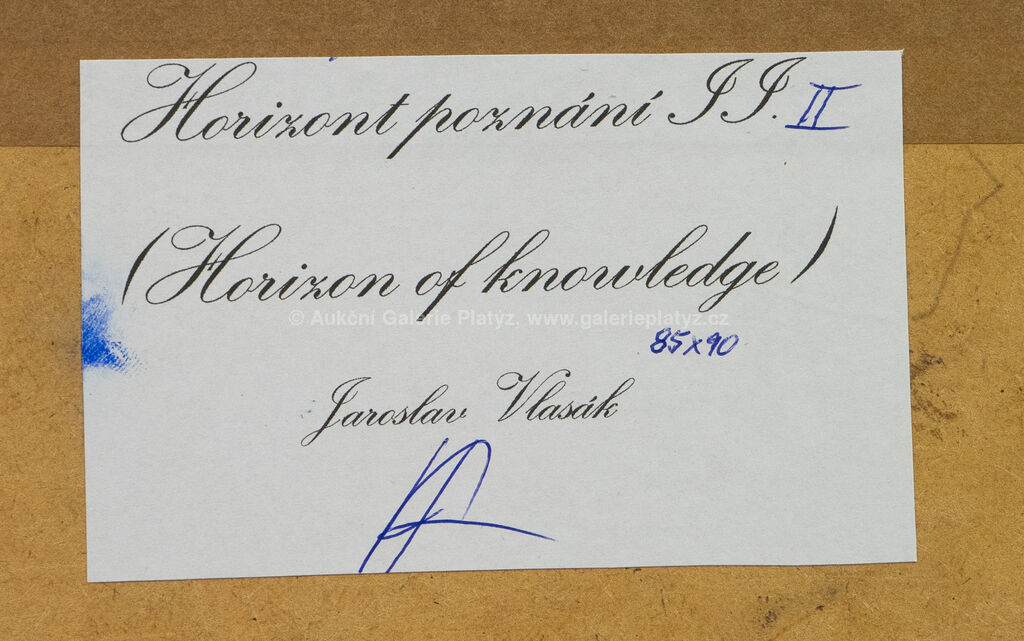 Horizont poznání II. II
(Horizon of knowledge)
© Aukční Galerie Platýz, www.galerieplatyz.cz
85x90
Jaroslav Vlasák